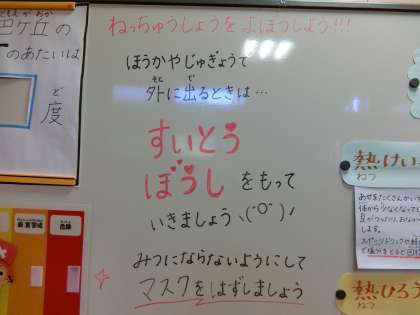 ねっちゅうしょうをよぼうしよう!!!
ほうかやじゅぎょうで
外に出るときは…
すいとう
ぼうしをもって
いきましょう
みつにならないようにして
マスクをはずしましょう
巴ケ丘の
のあたいは
ど
度
熱けい
ねつ
あせをたくさんかいて
熱ひろう
ねつ
厳重警戒
危険